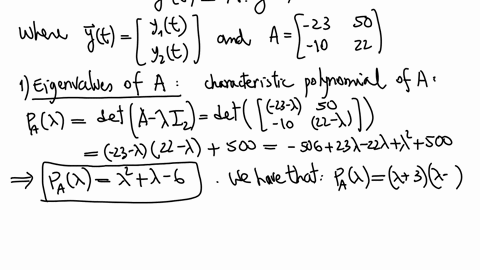 y'(t) = A · y
where y⃗(t) = [y₁(t) y₂(t)] and A = [-23 50 -10 22]
1) Eigenvalues of A : characteristic polynomial of A:
P_A(λ) = det(A-λI₂) = det([(-23-λ) 50 -10 (22-λ)])
= (-23-λ)(22-λ) + 500 = -506+23λ-22λ+λ²+500
⇒ P_A(λ) = λ²+λ-6 . We have that: P_A(λ) = (λ+3)(λ- )